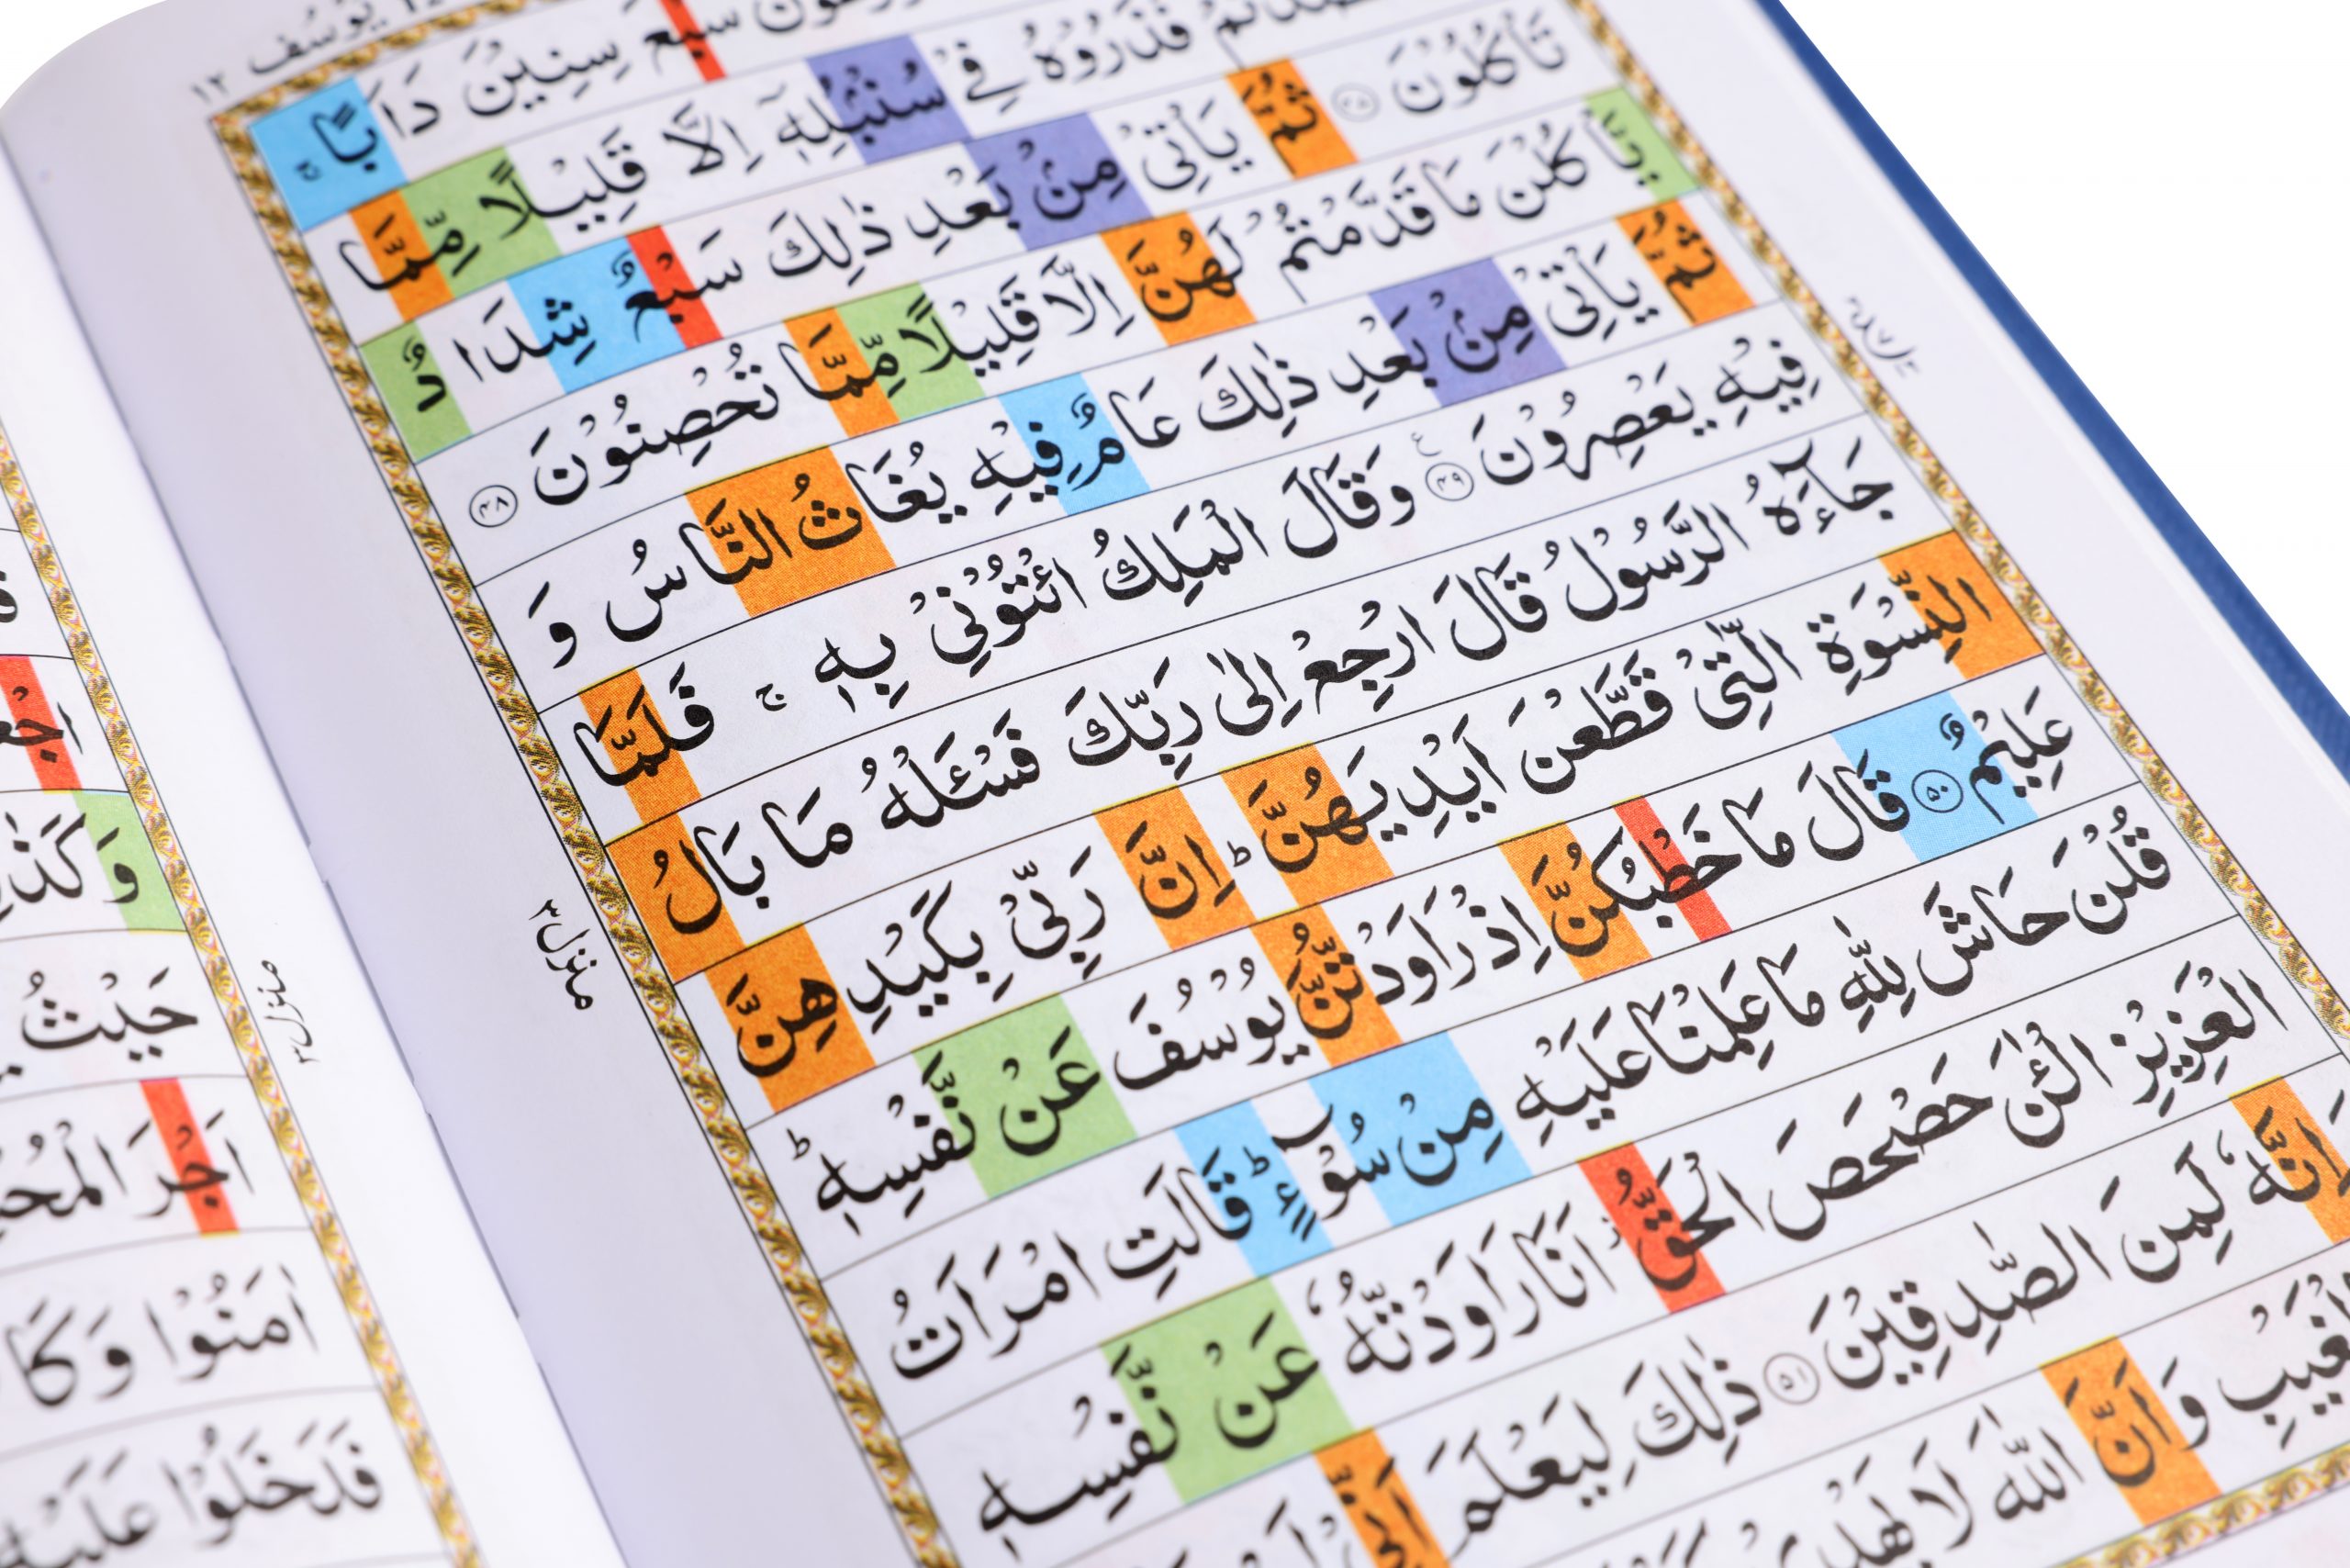 يوسف ١٢
سَبْعَ سِنِيْنَ دَاَبًا ۚ
فَذَرُوْهُ فِيْ سُنْۢبُلِهٖۤ اِلَّا قَلِيْلًا مِّمَّا
تَاْكُلُوْنَ ۝۴۷ ثُمَّ يَاْتِيْ مِنْۢ بَعْدِ ذٰلِكَ سَبْعٌ شِدَادٌ
يَّاْكُلْنَ مَا قَدَّمْتُمْ لَهُنَّ اِلَّا قَلِيْلًا مِّمَّا تُحْصِنُوْنَ ۝۴۸
ثُمَّ يَاْتِيْ مِنْۢ بَعْدِ ذٰلِكَ عَامٌ فِيْهِ يُغَاثُ النَّاسُ وَ
فِيْهِ يَعْصِرُوْنَ ۝۴۹ وَقَالَ الْمَلِكُ ائْتُوْنِيْ بِهٖ ۚ فَلَمَّا
جَآءَهُ الرَّسُوْلُ قَالَ ارْجِعْ اِلٰى رَبِّكَ فَسْـَٔلْهُ مَا بَالُ
النِّسْوَةِ الّٰتِيْ قَطَّعْنَ اَيْدِيَهُنَّ ؕ اِنَّ رَبِّيْ بِكَيْدِهِنَّ
عَلِيْمٌ ۝۵۰ قَالَ مَا خَطْبُكُنَّ اِذْ رَاوَدْتُّنَّ يُوْسُفَ عَنْ نَّفْسِهٖ ؕ
قُلْنَ حَاشَ لِلّٰهِ مَا عَلِمْنَا عَلَيْهِ مِنْ سُوْٓءٍ ؕ قَالَتِ امْرَاَتُ
الْعَزِيْزِ الْـٰٔنَ حَصْحَصَ الْحَقُّ ؗ اَنَا رَاوَدْتُّهٗ عَنْ نَّفْسِهٖ
وَ اِنَّهٗ لَمِنَ الصّٰدِقِيْنَ ۝۵۱ ذٰلِكَ لِيَعْلَمَ اَنِّيْ
بِالْغَيْبِ وَ اَنَّ اللّٰهَ لَا يَهْدِيْ
منزل ٣
وَكَذٰلِكَ
حَيْثُ
اَجْرَ الْمُحْسِنِيْنَ
اٰمَنُوْا وَكَانُوْا
فَدَخَلُوْا عَلَيْهِ
منزل ٣